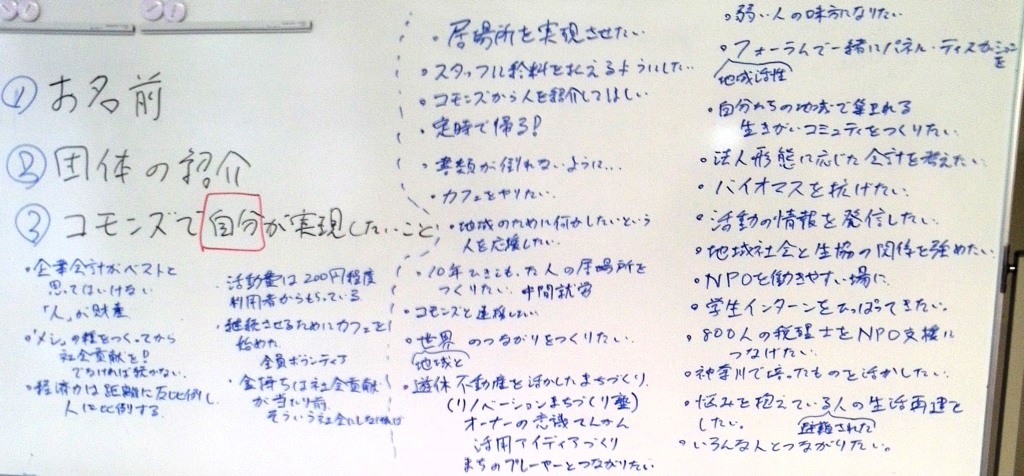 ① お名前
② 団体の紹介
③ コモンズで自分が実現したいこと
・企業会計がベストと
思ってはいけない
「人」が財産
・"メシ"の種をつくってから
社会貢献を!
でなければ続かない
・経済力は距離に反比例し、
人に比例する
・活動費は200円程度
利用者からもらっている
・継続させるためにカフェを
始めた
全員ボランティア
・金持ちは社会貢献
が当たり前
そういう社会にしなければ
・居場所を実現させたい
・スタッフに給料を払えるようにしたい
・コモンズから人を紹介してほしい
・定時で帰る!
・書類が倒れないように…
・カフェをやりたい
・地域のために何かしたいという
人を応援したい
・10年ひきこもった人の居場所を
つくりたい 中間就労
・コモンズと連携したい
・世界のつながりをつくりたい
地域と
・遊休不動産を活かしたまちづくり
(リノベーションまちづくり塾)
オーナーの意識てんかん
活用アイディアづくり
まちのプレーヤーとつながりたい
・弱い人の味方になりたい
・フォーラムで一緒にパネル・ディスカッションを
地域活性
・自分たちの地域で集まれる
生きがいコミュティをつくりたい
・法人形態に応じた会計を考えたい
・バイオマスを拡げたい
・活動の情報を発信したい
・地域社会と生協の関係を強めたい
・NPOを働きやすい場に
・学生インターンをひっぱってきたい。
・800人の税理士をNPO支援に
つなげたい
・神奈川で培ったものを活かしたい
・悩みを抱えている人の生活再建を
したい。
避難された
・いろんな人とつながりたい。